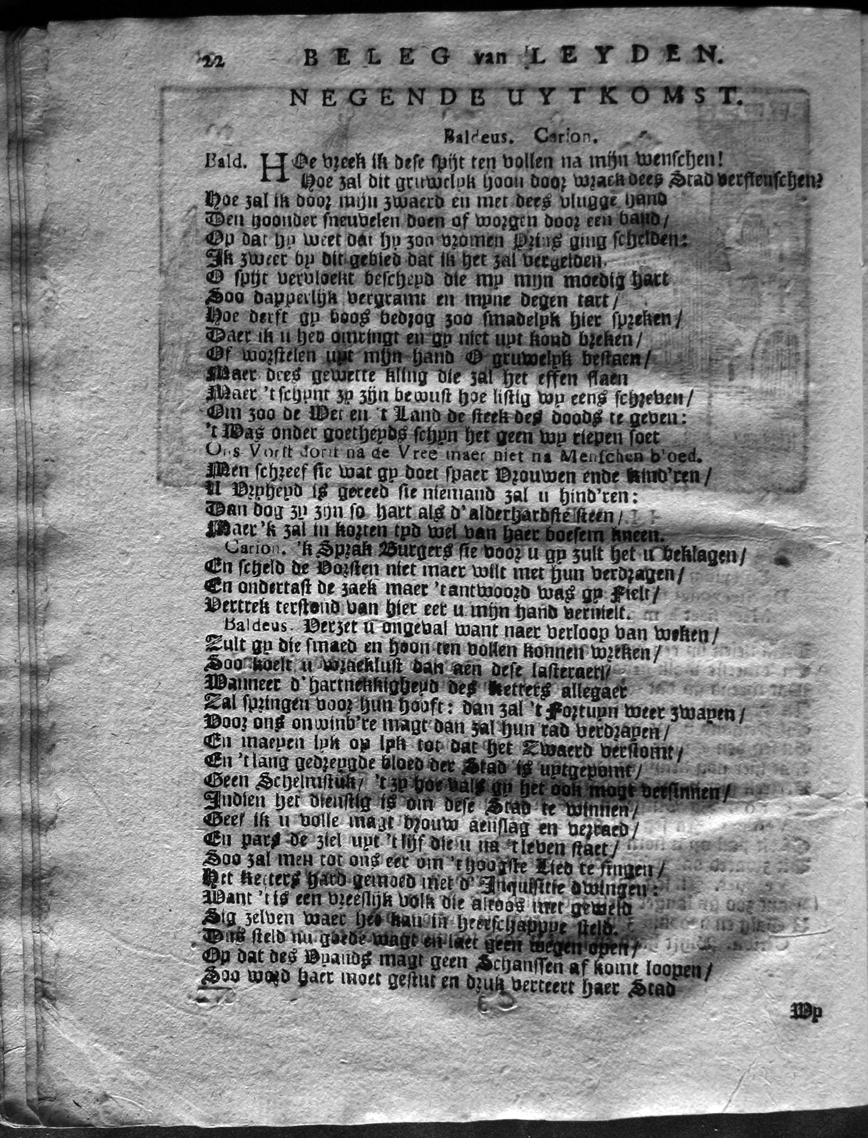 22 BELEG van LEYDEN.
NEGENDE UYTKOMST.
Baldeus. Carion.
Bald. HOe vreek ik dese spijt ten vollen na mijn wenschen!
Hoe zal dit gruwelyk hoon door wrack dees Stad verslenschen?
Hoe zal ik door mijn zwaerd en met dees vlugge hand
Den hoonder sneuvelen doen of worgen door een band/
Op dat hy weet dat hy zoo vromen Prins ging schelden:
Ik zweer by dit gebied dat ik het zal vergelden.
O spijt vervloekt bescheyd die my mijn moedig hart
Soo dapperlijk vergramt en myne degen tart/
Hoe derft gy boos bedrog zoo smadelyk hier spreken/
Daer ik u heb omringt en gy niet uyt kond breken/
Of worstelen uyt mijn hand O gruwelyk bestaen/
Maer dees gewette kling die zal het effen slaen
Maer 't schynt zy zijn bewust hoe listig wy eens schreven/
Om zoo de Wet en 't Land de steek des doods te geven:
't Was onder goetheyds schyn het geen wy riepen soet
Ons Vorst dorst na de Vree maer niet na Menschen b'oed.
Men schreef sie wat gy doet spaer Vrouwen ende kind'ren/
U Vryheyd is gereed sie niemand zal u hind'ren:
Dan dog zy zijn so hart als d'alderhardste steen/
Maer 'k zal in korten tyd wel van haer boesem kneen.
Carion. 'k Sprak Burgers sie voor u gy zult het u beklagen/
En scheld de Vorsten niet maer wilt met hun verdragen/
En ondertast de zaek maer 't antwoord was gy Fielt/
Vertrek terstond van hier eer u mijn hand vernielt.
Baldeus. Verzet u ongeval want naer verloop van weken/
Zult gy die smaed en hoon ten vollen konnen wreken/
Soo koelt u wraeklust dan aen dese lasteraers/
Wanneer d'hartnekkigheyd des Ketters allegaer
Zal springen voor hun hooft: dan zal 't Fortuyn weer zwayen/
Door ons onwinb're magt dan zal hun rad verdrayen/
En maeyen lyk op lyk tot dat het Zwaerd verstomt/
En 't lang gedreygde bloed der Stad is uytgepomt/
Geen Schelmstuk/ 't zy hoe vals gy het ook mogt versinnen/
Indien het dienstig is om dese Stad te winnen/
Geef ik u volle magt brouw aenslag en verraed/
En pars de ziel uyt 't lijf die u na 't leven staet/
Soo zal men tot ons eer om 't hoogste Lied te singen/
Het Ketters hard gemoed met d'Inquisitie dwingen:
Want 't is een vreeslijk volk die altoos met geweld
Sig zelven waer het kan in heerschappye steld.
Dus steld nu goede wagt en laet geen wegen open/
Op dat des Vyands magt geen Schanssen af komt loopen/
Soo word haer moet gestut en druk verteert haer Stad
Wy